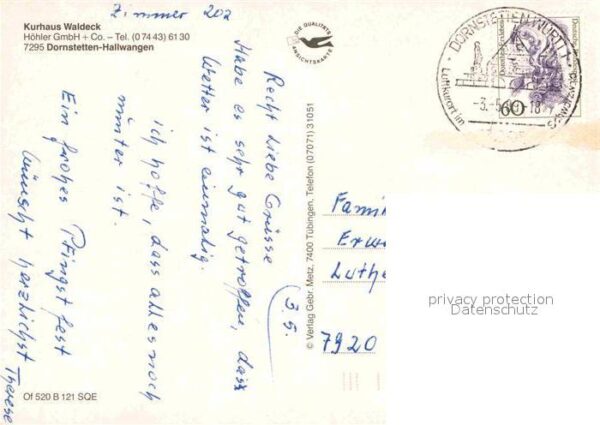 Zimmer 202
Kurhaus Waldeck
Höhler GmbH + Co. – Tel. (0 74 43) 61 30
7295 Dornstetten-Hallwangen
DIE QUALITÄTS
ANSICHTSKARTE
Recht liebe Grüsse
Habe es sehr gut getroffen, dass
Wetter ist einmalig.
ich hoffe, dass alles noch
munter ist.
Ein frohes Pfingstfest
wünscht herzlichst Therese
3.5.
© Verlag Gebr. Metz, 7400 Tübingen, Telefon (07071) 31051
Of 520 B 121 SQE
DORNSTETTEN, WÜRTT
Luftkurort im
Schwarzwald
-3.-5.
-18
60
Famil
Erw
Luthe
7920
privacy protection
Datenschutz